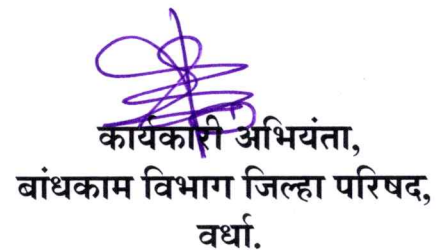 कार्यकारी अभियंता,
बांधकाम विभाग जिल्हा परिषद,
वर्धा.